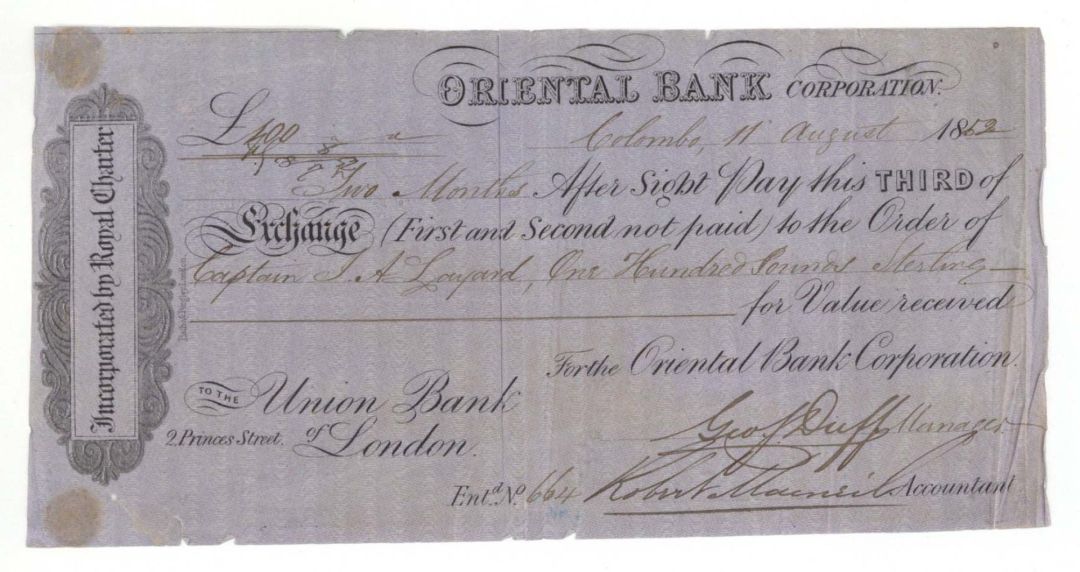 ORIENTAL BANK CORPORATION.
£100
Colombo, 11 August 1852
Two Months After Sight Pay this THIRD of
Exchange (First and Second not paid) to the Order of
Captain J. A. Layard, One Hundred Pounds Sterling
for Value received
For the Oriental Bank Corporation.
TO THE Union Bank
2, Princes Street. of London.
Geo S Duff Manager
Ent.d No. 664 Robert Macneil Accountant
Incorporated by Royal Charter